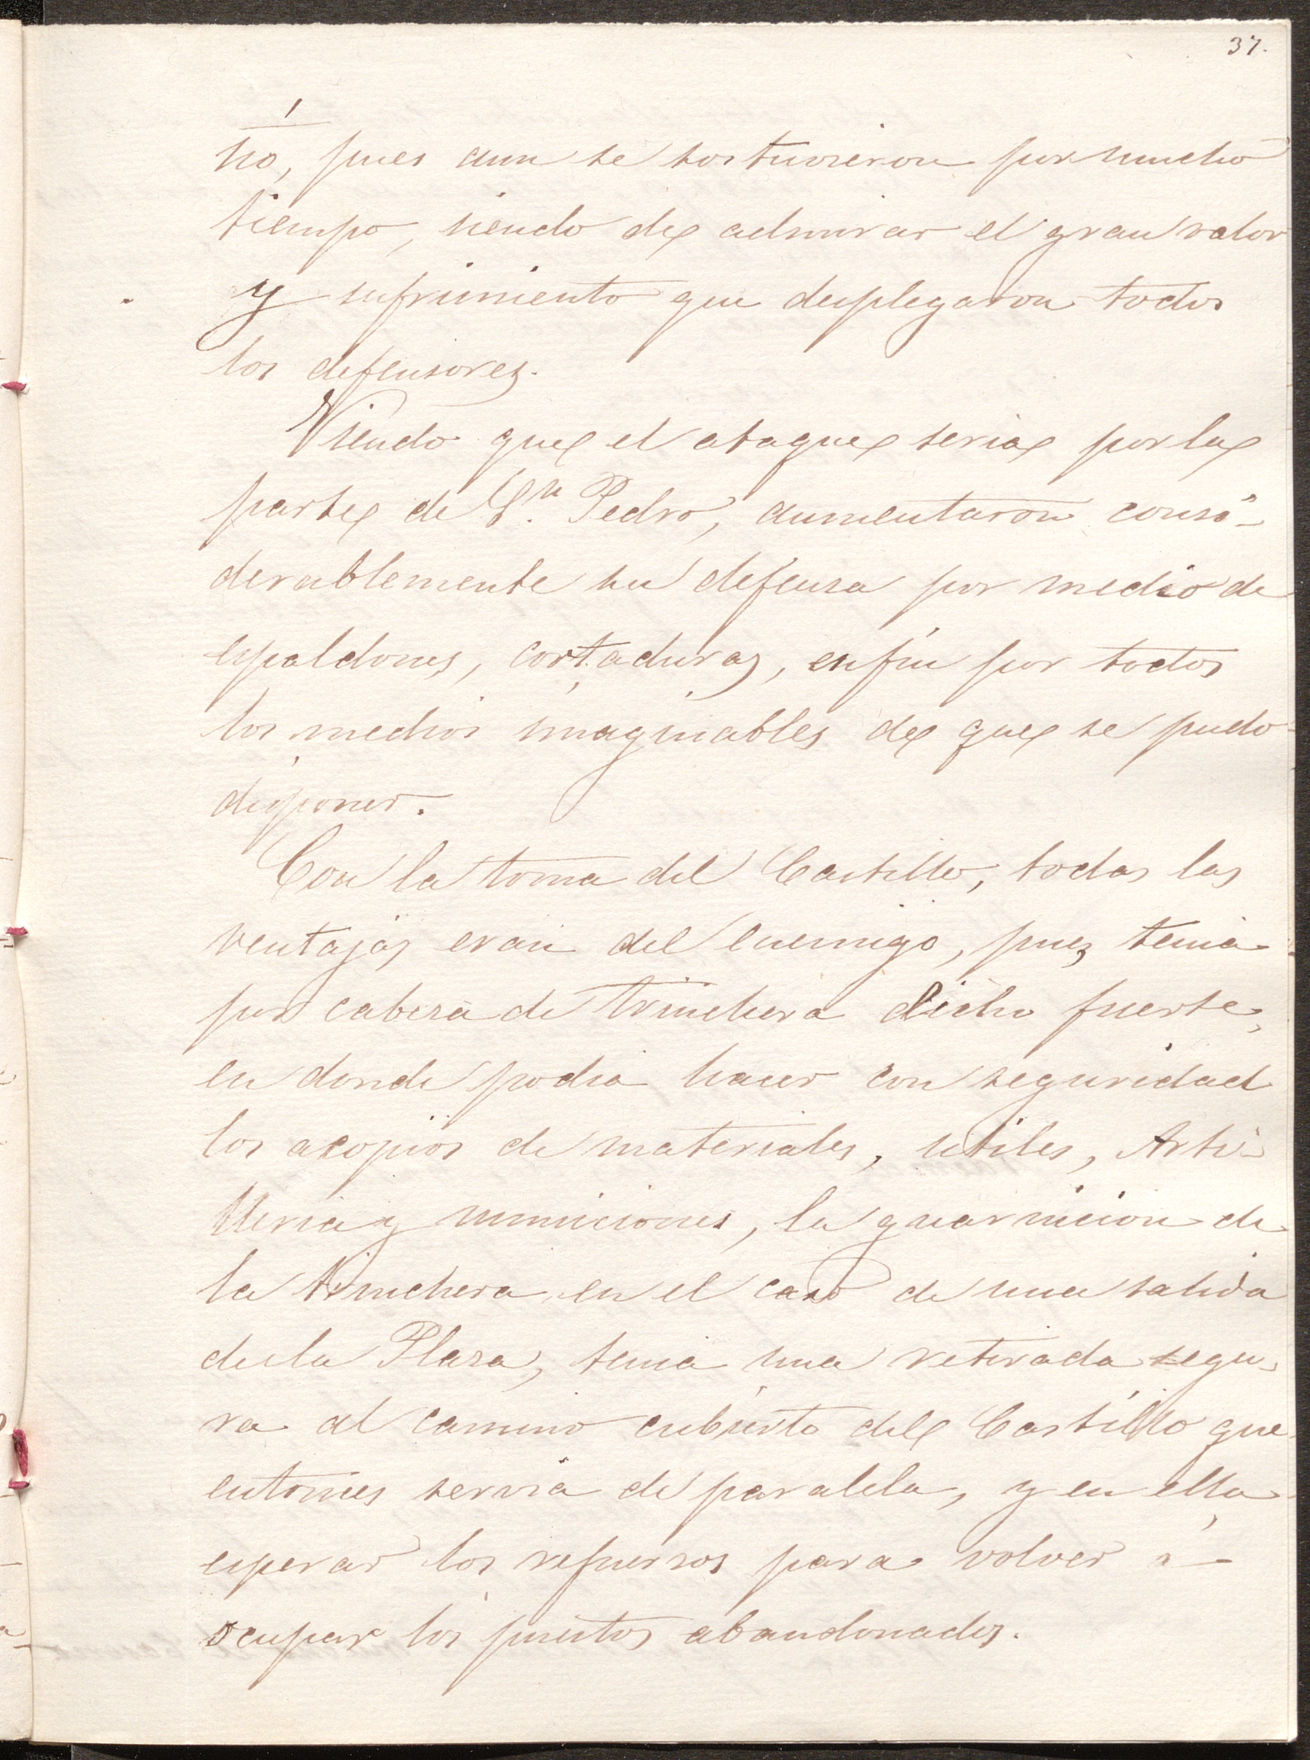 37.
tió, pues aun se sostuvieron por mucho
tiempo, siendo de admirar el gran valor
y sufrimiento que desplegaron todos
los defensores.
Viendo que el ataque seria por la
parte de Sn. Pedro, aumentaron consi-
derablemente su defensa por medio de
espaldones, cortaduras, enfin por todos
los medios imaginables de que se pudo
disponer.
Con la toma del Castillo, todas las
ventajas eran del enemigo, pues tenia
por cabeza de trinchera dicho fuerte,
en donde podia hacer con seguridad
los acopios de materiales, utiles, Arti-
lleria y municiones, la guarnicion de
la trinchera en el caso de una salida
de la Plaza, tenia una retirada segu-
ra al camino cubierto del Castillo que
entonces servia de paralela, y en ella
esperar los refuerzos para volver á
ocupar los puestos abandonados.